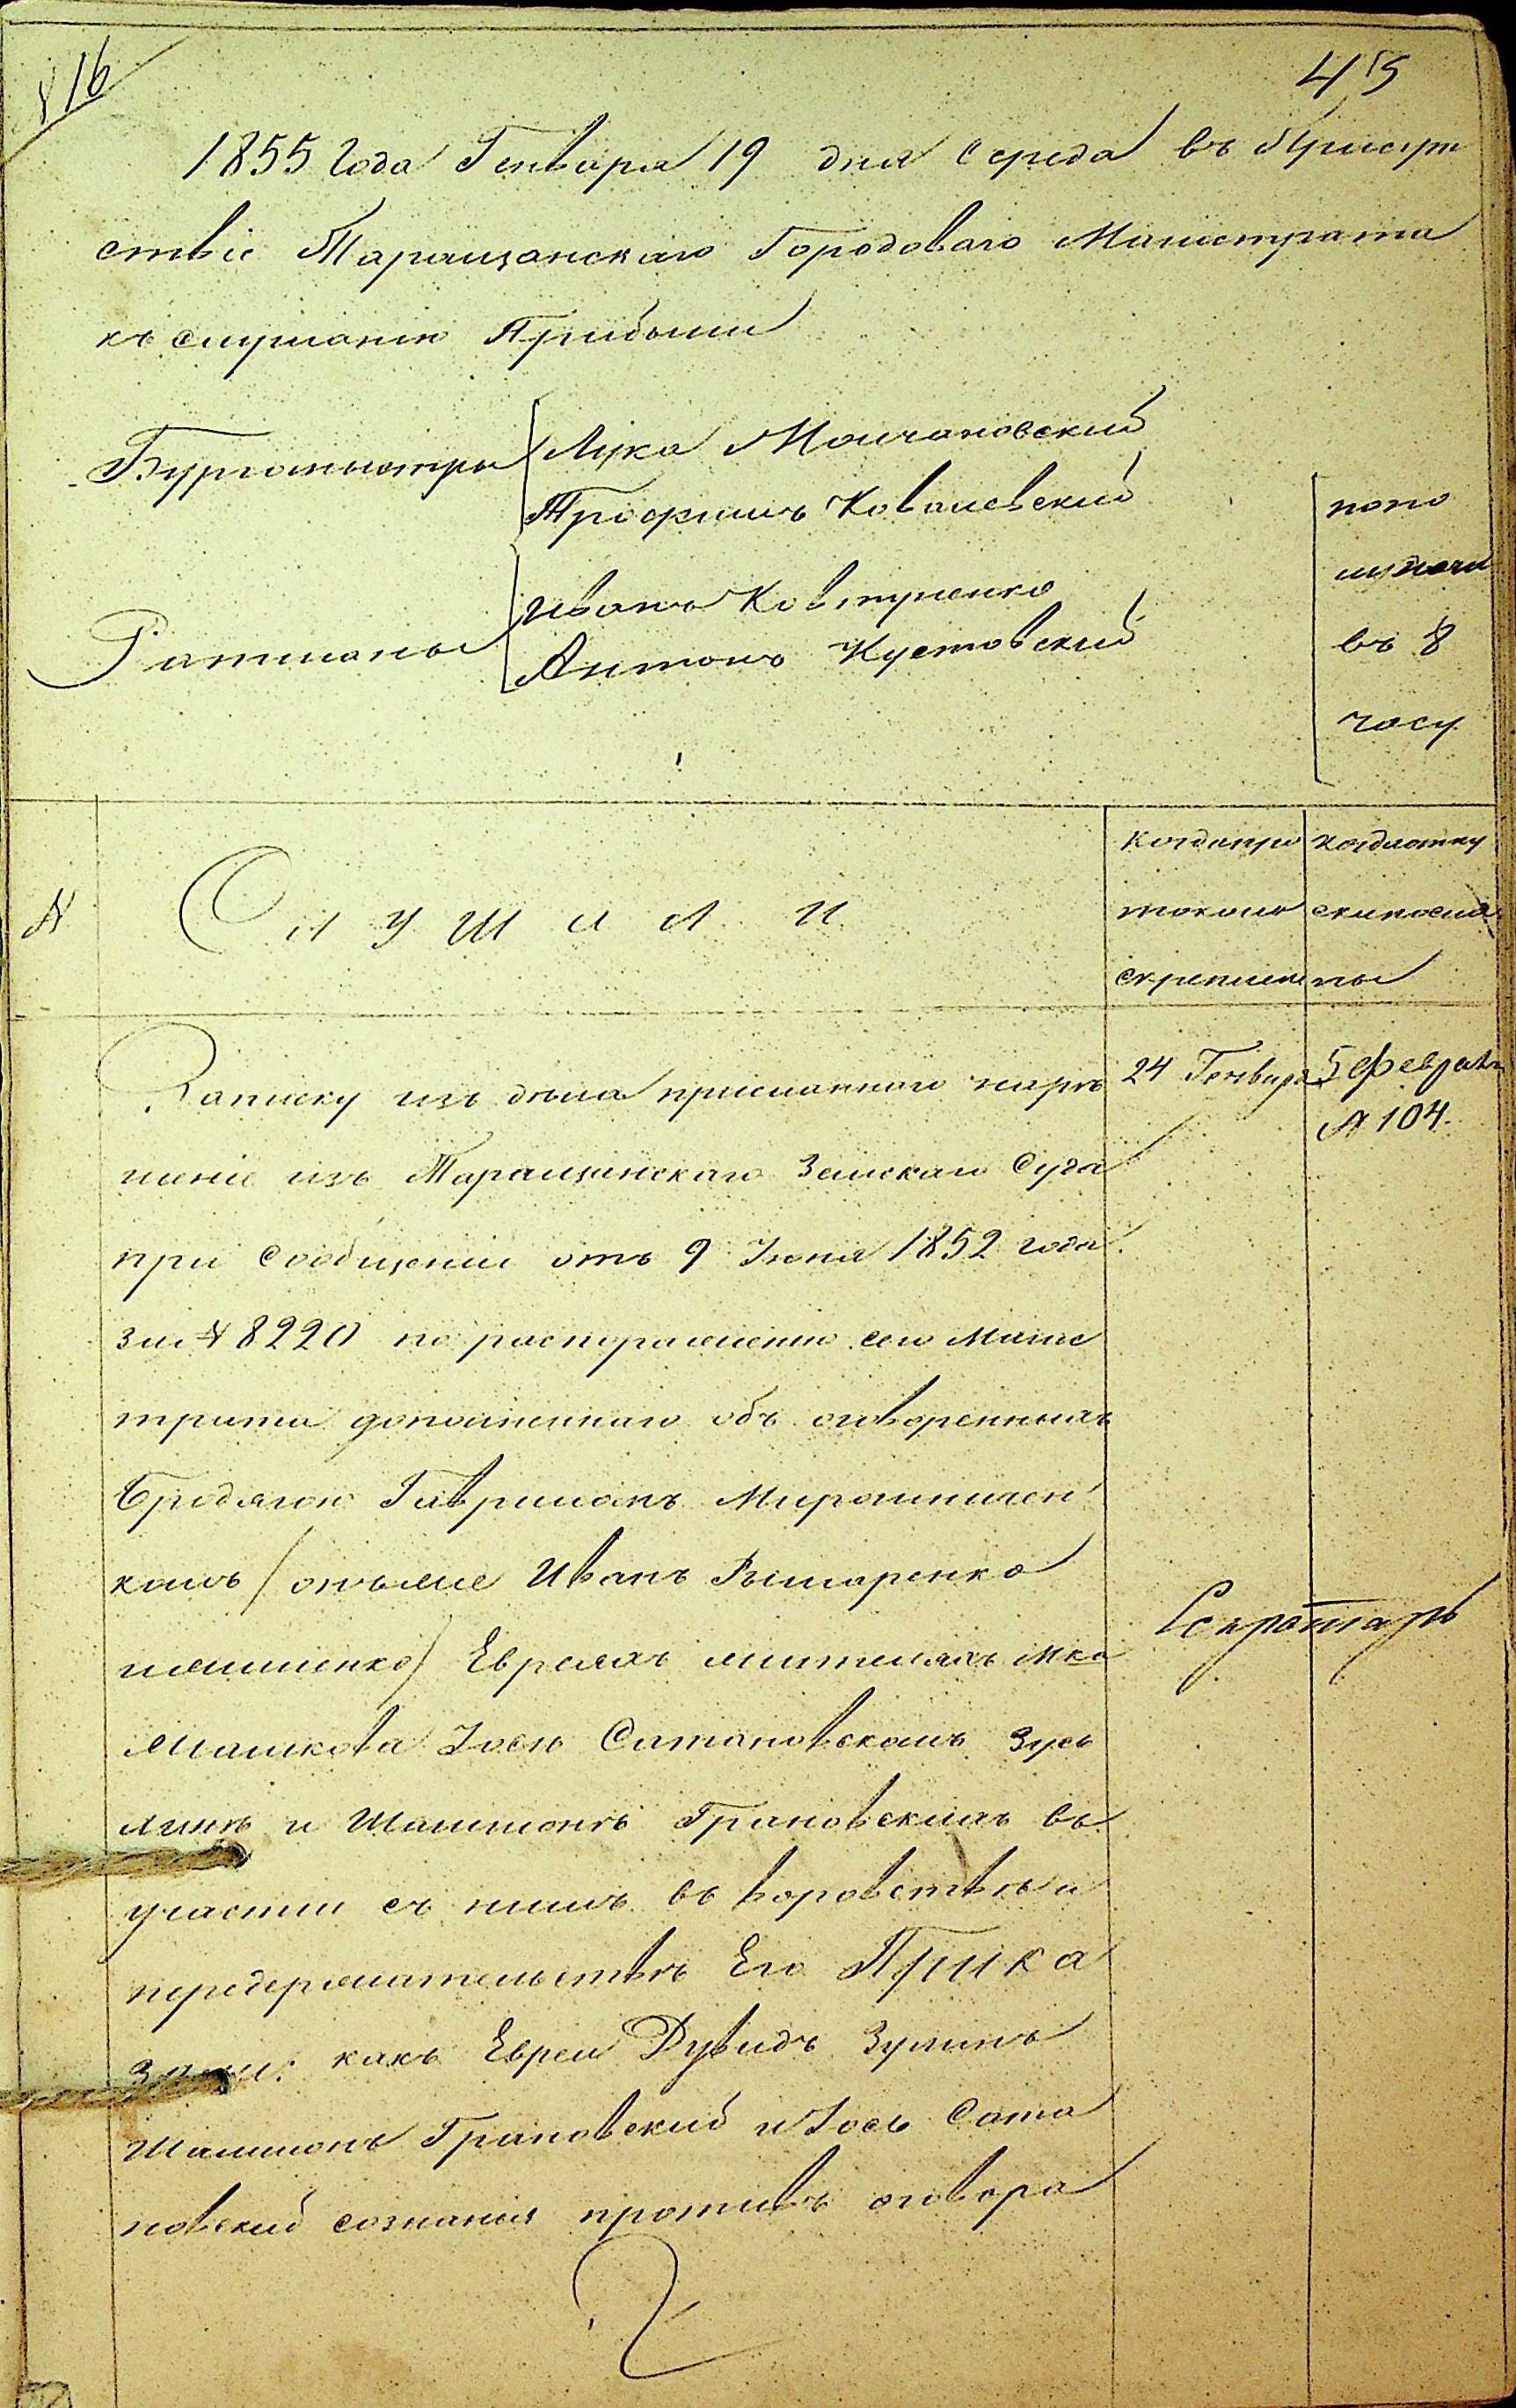 16
45
1855 Года Генваря 19 дня Середа въ Присут
ствіе Таращанскаго Городоваго Магистрата
къ слушанію Прибыли
Бургомистры Лука Молчановский
Трофимъ Ковалевский
Ратманы Иванъ Ковтуненко
Антонъ Кустовский
попо
лудни
въ 8
часу
N Слушали
когда про
токолъ
скрепленъ
когда
ны
Записку изъ дела присланного на ре
шеніе изъ Таращанскаго Земскаго Суда
при Сообщеніи отъ 9 Іюня 1852 года
за N 8220 по распоряженію сего Магис
трата дополненного объ оговоренныхъ
бродягою Гавриломъ Мирошничен
комъ / онъ же Иванъ Рымаренко
Евреяхъ жителяхъ Мка
Машкова Іосю Сатановскомъ Зусь
и Шаллионъ Грановскихъ въ
участии съ нимъ въ воровстве и
передержательстве Его Прика
зали: какъ Евреи Дувидъ
Шаллионъ Грановский и Іось Сата
новский сознанія противъ оговора
24 Генваря
5 Февраля
N 104.
Секретарь